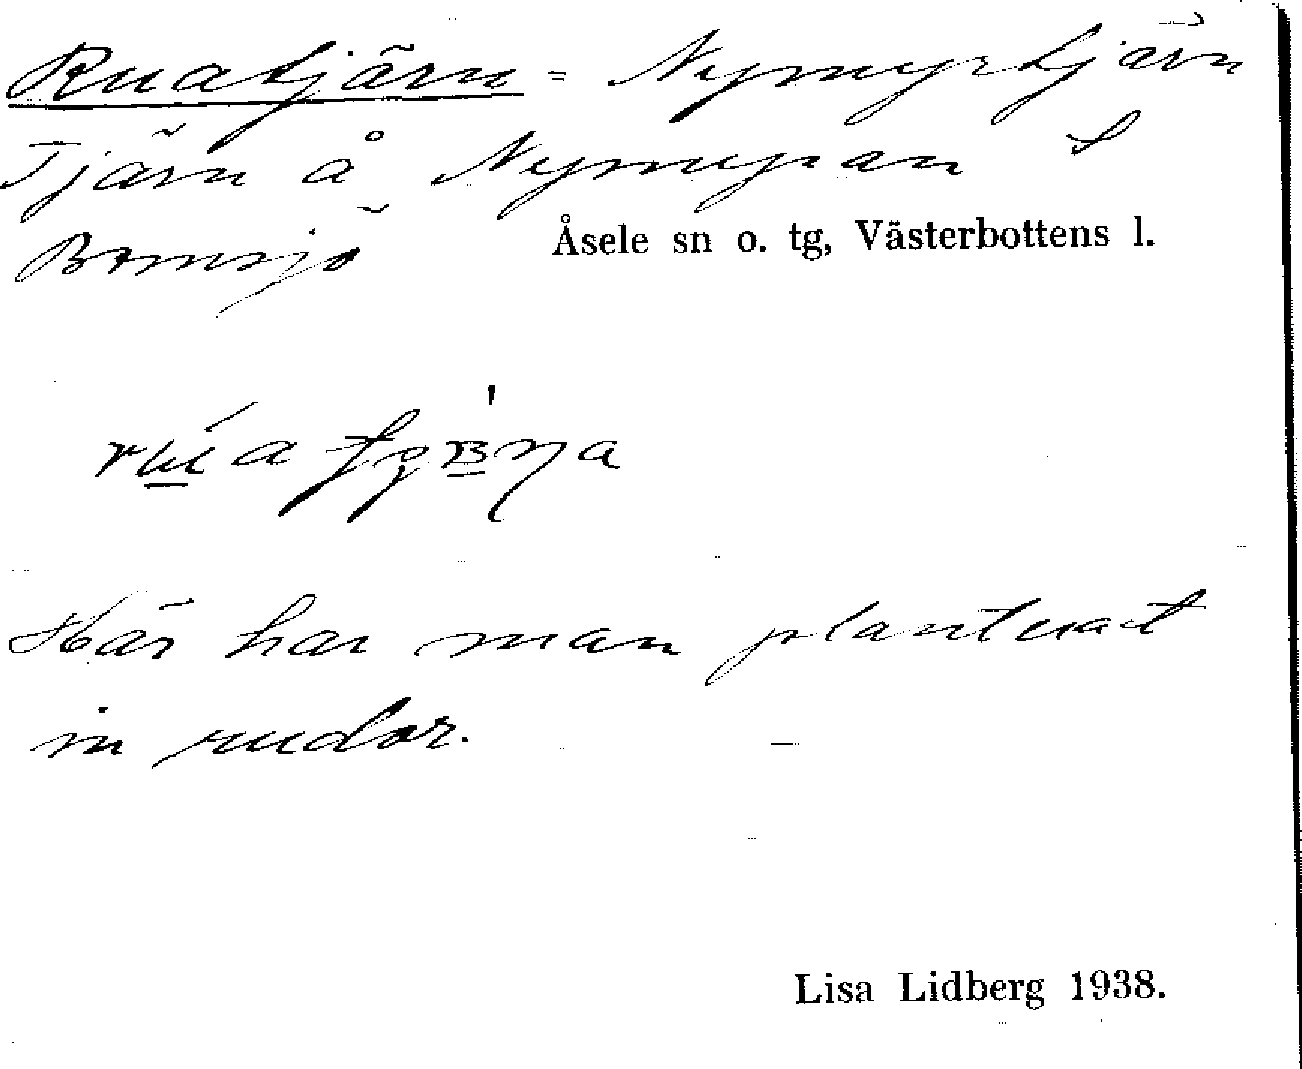 Ruatjärn = Nymyrtjärn
Tjärn å Nymyran t
Bomsjö
Åsele sn o. tg, Västerbottens l.
Här har man planterat
in rudor.
Lisa Lidberg 1938.